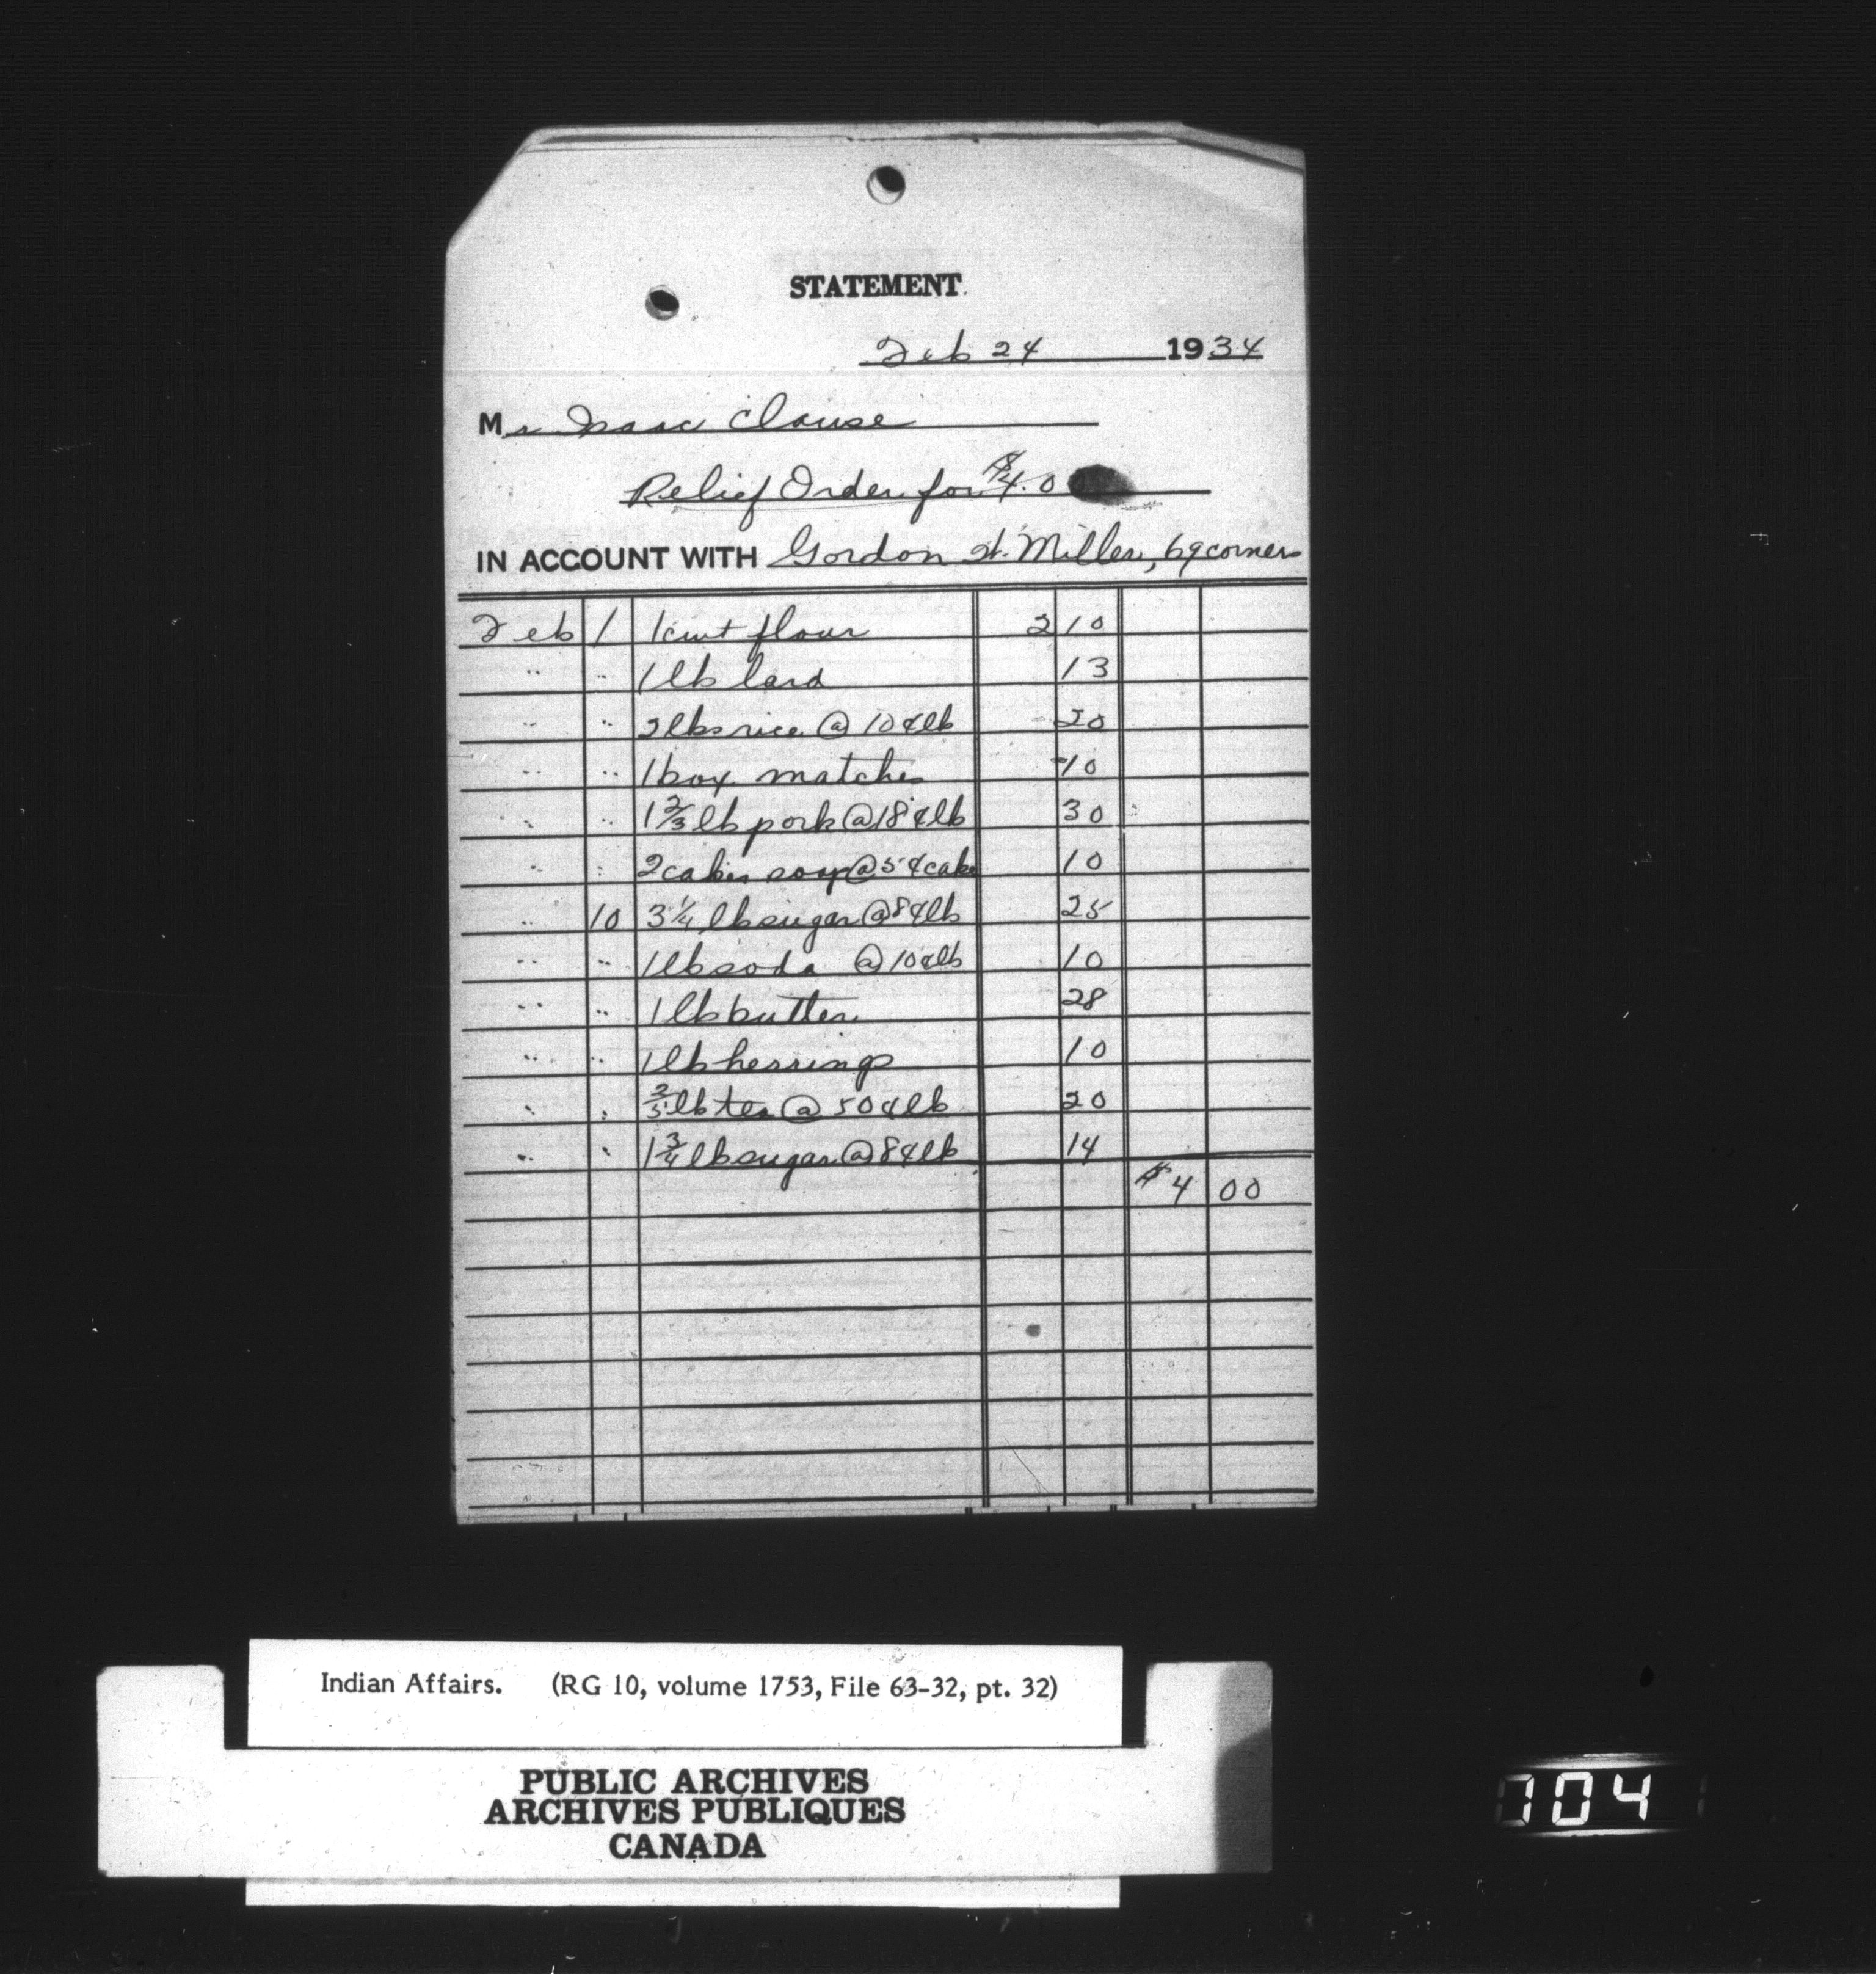 STATEMENT.
Feb 24 1934
Mr Isaac Clause
Relief Order for $4.0
IN ACCOUNT WITH Gordon H. Miller, 69 corners
Feb 1 1 cwt flour 2 10
" " 1 lb lard 13
" " 2 lbs rice @ 10¢ lb 20
" " 1 box matches 10
" " 1 2/3 lb pork @ 18¢ lb 30
" " 2 cakes soap @ 5¢ cake 10
" 10 3 1/4 lb sugar @ 8¢ lb 25
" " 1 lb soda @ 10¢ lb 10
" " 1 lb butter 28
" " 1 lb herrings 10
" " 2/5 lb tea @ 50¢ lb 20
" " 1 3/4 lb sugar @ 8¢ lb 14
$4 00
Indian Affairs. (RG 10, volume 1753, File 63-32, pt. 32)
PUBLIC ARCHIVES
ARCHIVES PUBLIQUES
CANADA
704